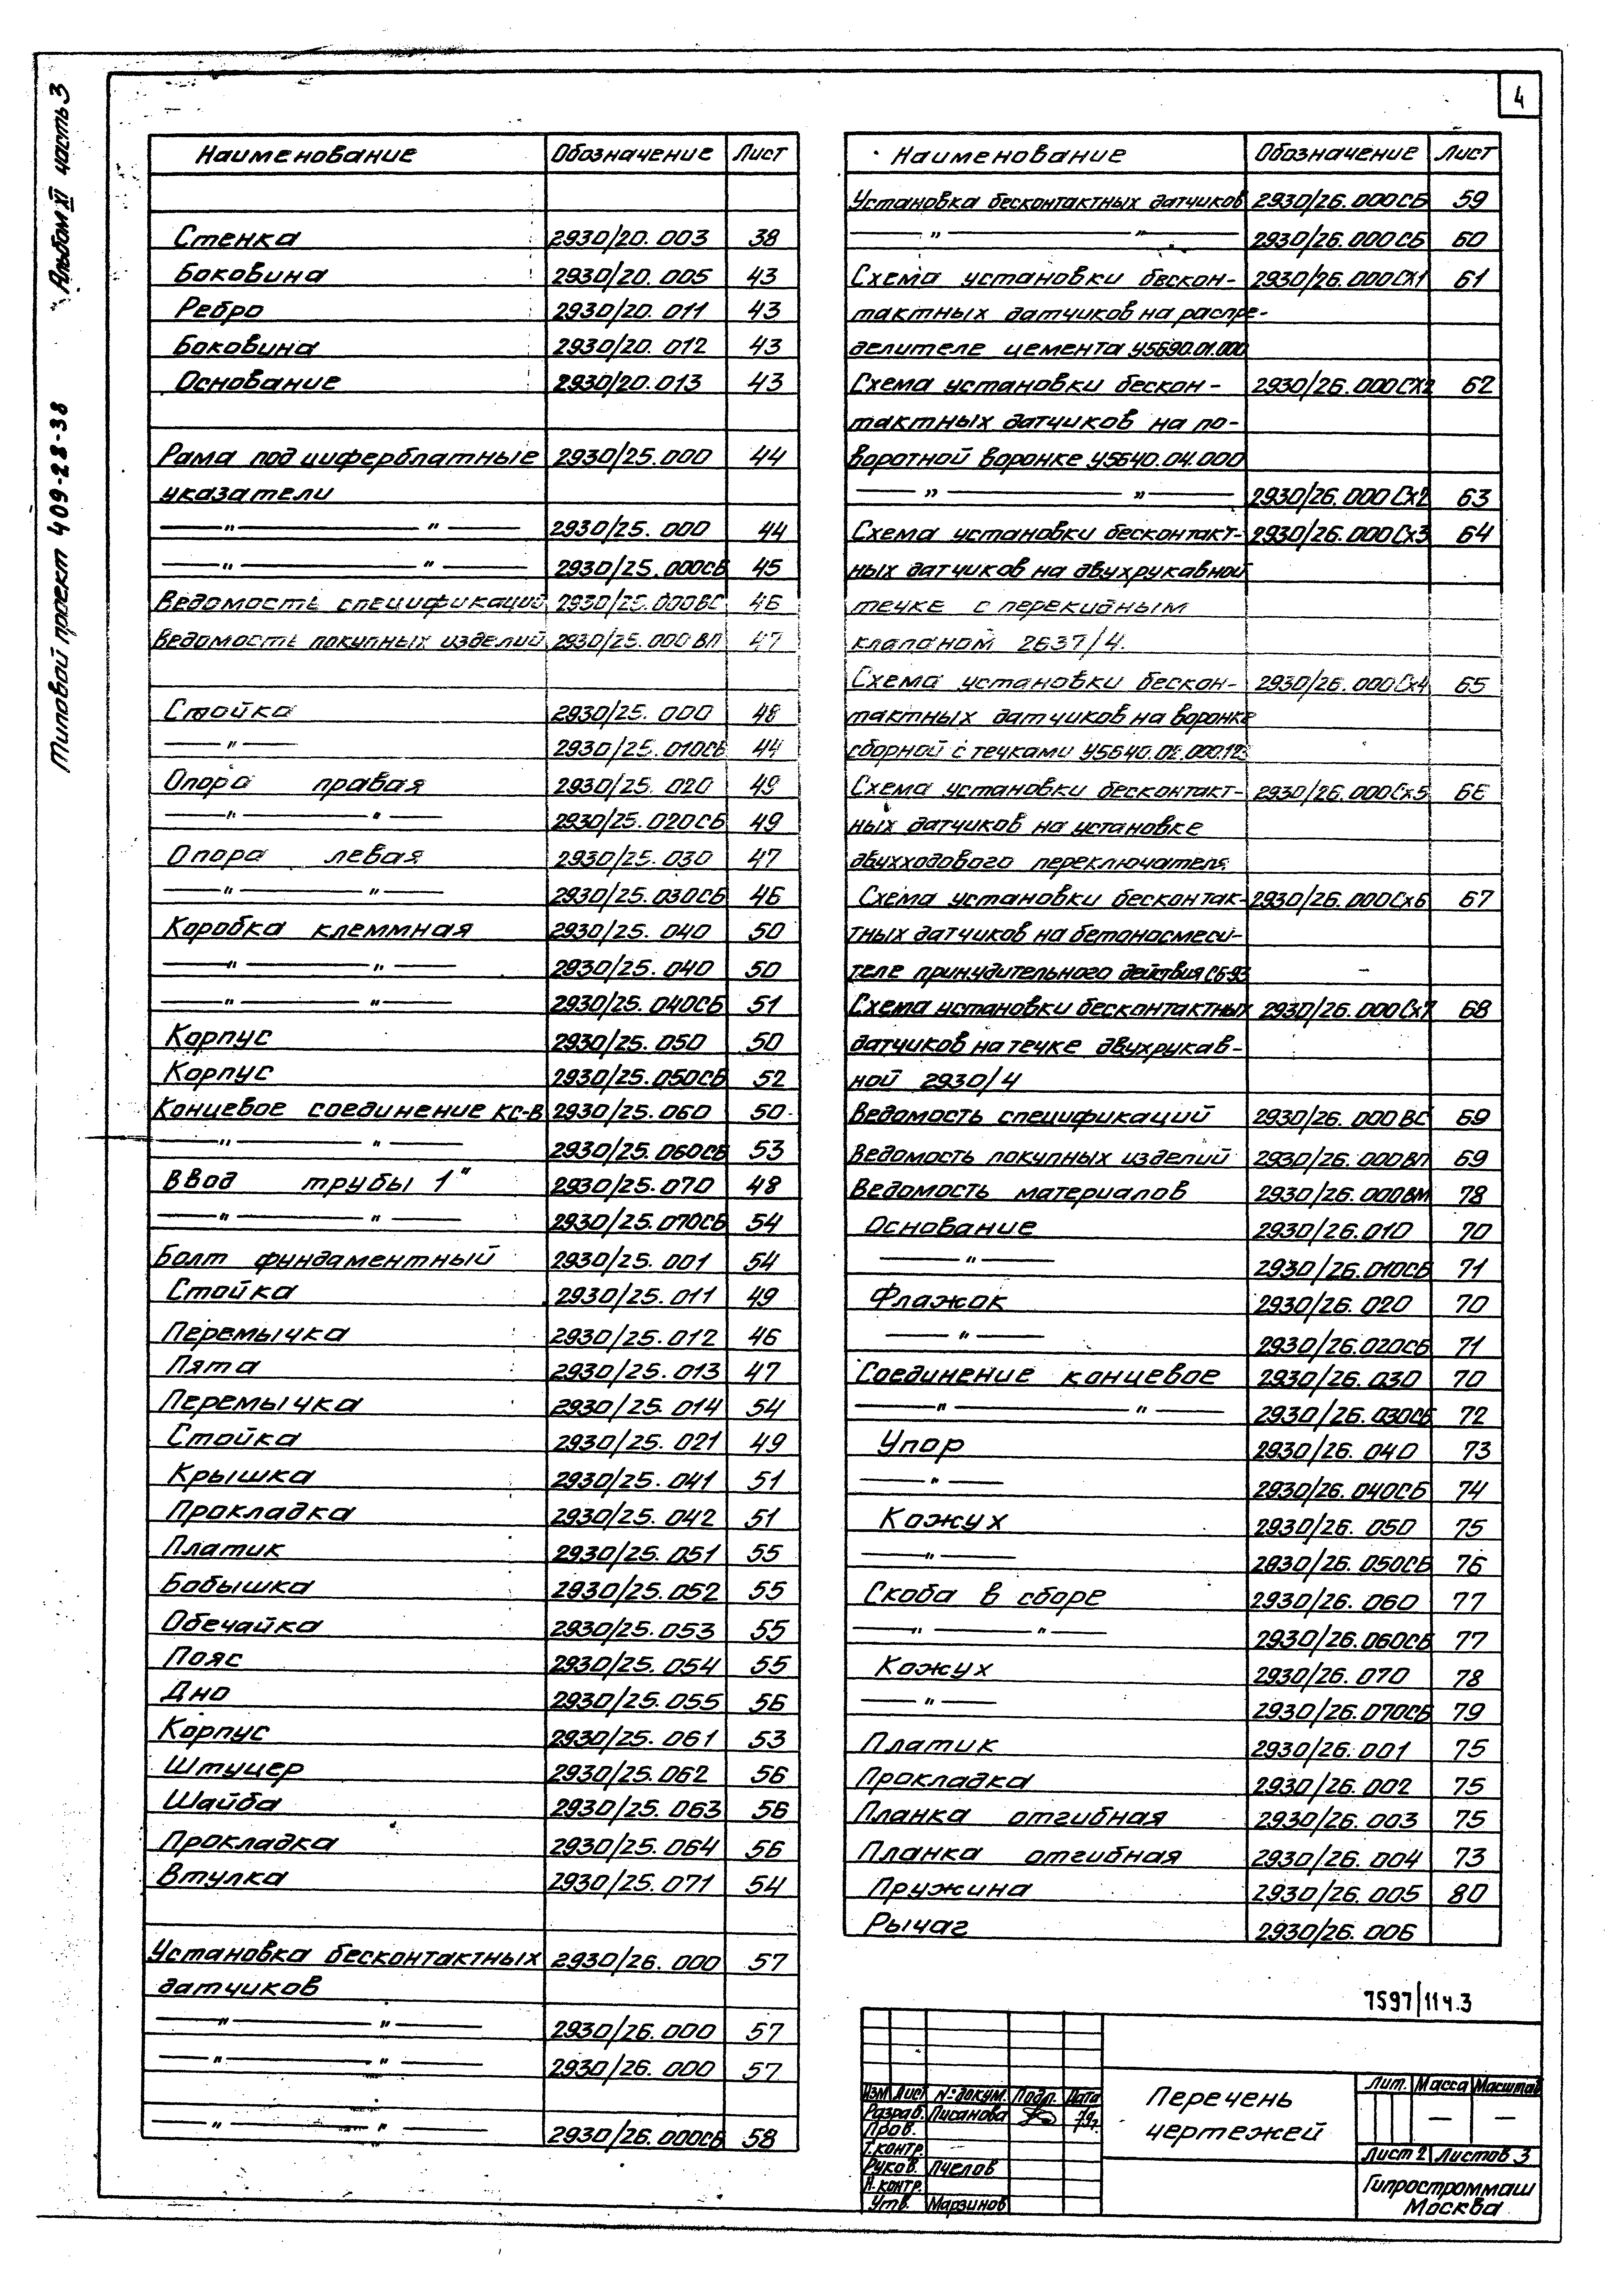 Альбом XI часть 3
Типовой проект 409-28-38
4
Наименование Обозначение Лист
Стенка 2930/20.003 38
Боковина 2930/20.005 43
Ребро 2930/20.011 43
Боковина 2930/20.012 43
Основание 2930/20.013 43
Рама под циферблатные 2930/25.000 44
указатели
—〃— —〃— 2930/25.000 44
—〃— —〃— 2930/25.000СБ 45
Ведомость спецификаций 2930/25.000ВС 46
Ведомость покупных изделий 2930/25.000ВП 47
Стойка 2930/25.000 48
—〃— 2930/25.010СБ 44
Опора правая 2930/25.020 49
—〃— —〃— 2930/25.020СБ 49
Опора левая 2930/25.030 47
—〃— —〃— 2930/25.030СБ 46
Коробка клеммная 2930/25.040 50
—〃— —〃— 2930/25.040 50
—〃— —〃— 2930/25.040СБ 51
Корпус 2930/25.050 50
Корпус 2930/25.050СБ 52
Концевое соединение КС-В 2930/25.060 50
—〃— —〃— 2930/25.060СБ 53
Ввод трубы 1" 2930/25.070 48
—〃— —〃— 2930/25.070СБ 54
Болт фундаментный 2930/25.001 54
Стойка 2930/25.011 49
Перемычка 2930/25.012 46
Пята 2930/25.013 47
Перемычка 2930/25.014 54
Стойка 2930/25.021 49
Крышка 2930/25.041 51
Прокладка 2930/25.042 51
Платик 2930/25.051 55
Бобышка 2930/25.052 55
Обечайка 2930/25.053 55
Пояс 2930/25.054 55
Дно 2930/25.055 56
Корпус 2930/25.061 53
Штуцер 2930/25.062 56
Шайба 2930/25.063 56
Прокладка 2930/25.064 56
Втулка 2930/25.071 54
Установка бесконтактных 2930/26.000 57
датчиков
—〃— —〃— 2930/26.000 57
—〃— —〃— 2930/26.000 57
—〃— —〃— 2930/26.000СБ 58
Наименование Обозначение Лист
Установка бесконтактных датчиков 2930/26.000СБ 59
—〃— —〃— 2930/26.000СБ 60
Схема установки бескон- 2930/26.000Сх1 61
тактных датчиков на распре-
делителе цемента У5690.01.000
Схема установки бескон- 2930/26.000СХ2 62
тактных датчиков на по-
воротной воронке У5640.04.000
—〃— —〃— 2930/26.000Сх2 63
Схема установки бесконтакт- 2930/26.000Сх3 64
ных датчиков на двухрукавной
течке с перекидным
клапаном 2637/4.
Схема установки бескон- 2930/26.000Сх4 65
тактных датчиков на воронке
сборной с течками
Схема установки бесконтакт- 2930/26.000Сх5 66
ных датчиков на установке
двухходового переключателя.
Схема установки бесконтак- 2930/26.000Сх6 67
тных датчиков на бетоносмеси-
теле принудительного действия СБ-93 –
Схема установки бесконтактных 2930/26.000Сх7 68
датчиков на течке двухрукав-
ной 2930/4
Ведомость спецификаций 2930/26.000ВС 69
Ведомость покупных изделий 2930/26.000ВП 69
Ведомость материалов 2930/26.000ВМ 78
Основание 2930/26.010 70
—〃— 2930/26.010СБ 71
Флажок 2930/26.020 70
—〃— 2930/26.020СБ 71
Соединение концевое 2930/26.030 70
—〃— —〃— 2930/26.030СБ 72
Упор 2930/26.040 73
—〃— 2930/26.040СБ 74
Кожух 2930/26.050 75
—〃— 2930/26.050СБ 76
Скоба в сборе 2930/26.060 77
—〃— —〃— 2930/26.060СБ 77
Кожух 2930/26.070 78
—〃— 2930/26.070СБ 79
Платик 2930/26.001 75
Прокладка 2930/26.002 75
Планка отгибная 2930/26.003 75
Планка отгибная 2930/26.004 73
Пружина 2930/26.005 80
Рычаг 2930/26.006
7597/11ч.3
Изм Лист № докум. Подп. Дата
Разраб. Писанова 79г.
Пров.
Т.контр.
Руков. Пчелов
Н.контр.
Утв. Марзинов
Перечень
чертежей
Лит. Масса Масштаб
— —
Лист 2 Листов 3
Гипростроммаш
Москва